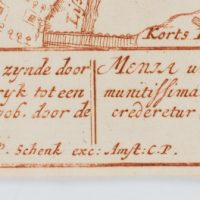 Korts
zynde door MENZA u
ryk tot een munitissima
ob. door de crederetur
P. Schenk exc: Amst: C.P.